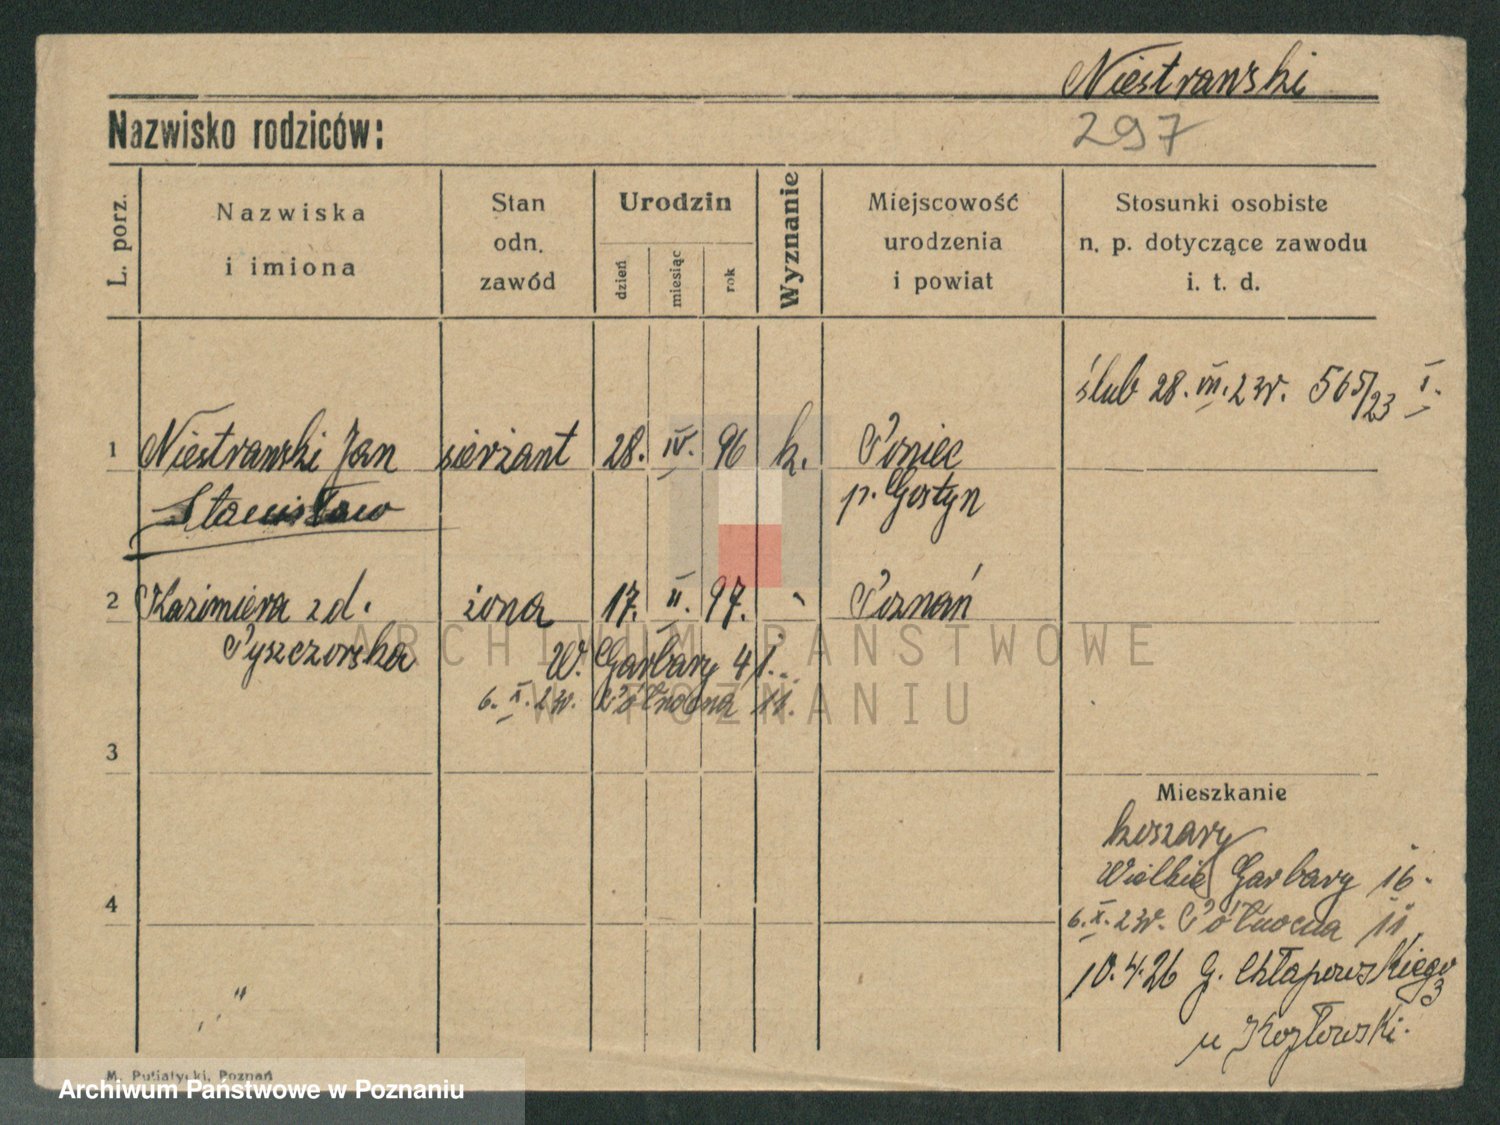 Niestrawski
Nazwisko rodziców:
297
L. porz.
Nazwiska
i imiona
Stan
odn.
zawód
Urodzin
dzień
miesiąc
rok
Wyznanie
Miejscowość
urodzenia
i powiat
Stosunki osobiste
n. p. dotyczące zawodu
i. t. d.
ślub 28. VII. 23r. 565/23 I.
1 Niestrawski Jan sierżant 28. IV. 96 k. Poniec
Stanisław p. Gostyn
2 Kazimiera z d. żona 17. II. 97. Poznań
Pyszczorska W. Garbary 41.
6. X. 23r. Północna 11.
ARCHIWUM PAŃSTWOWE
W POZNANIU
3
Mieszkanie
koszary
Wielkie Garbary 16.
4
6. X. 23r. Północna 11.
10.4.26 G. Chłapowskiego
3
u Kozłowski.
M. Putiatycki, Poznań
Archiwum Państwowe w Poznaniu